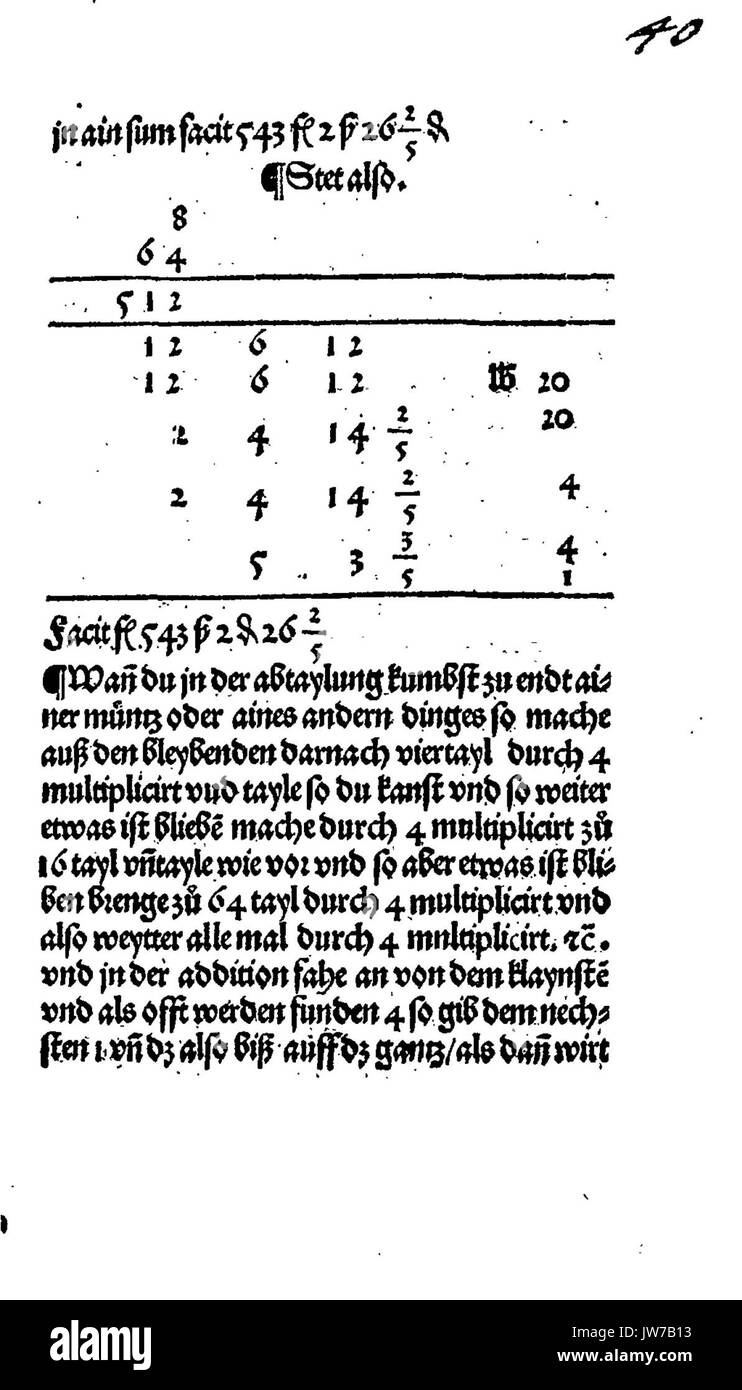 40
jn ain sum facit 543 fl 2 ß 26 2/5 ₰
¶Stet also.
8
6 4
5 1 2
1 2 6 1 2
1 2 6 1 2 lb 20
2 4 1 4 2/5 20
2 4 1 4 2/5 4
5 3 3/5 4
1
Facit fl 543 ß 2 ₰ 26 2/5
¶Wañ du jn der abtaylung kumbst zu endt ai⸗
ner müntz oder aines andern dinges so mache
auß den bleybenden darnach viertayl durch 4
multiplicirt vnd tayle so du kanst vnd so weiter
etwas ist bliebē mache durch 4 multiplicirt zů
16 tayl vñ tayle wie vor vnd so aber etwas ist bli⸗
ben brenge zů 64 tayl durch 4 multiplicirt vnd
also weytter alle mal durch 4 mnltiplicirt. ⁊c̄.
vnd jn der addition fahe an von dem klaynstē
vnd als offt werden funden 4 so gib dem nech⸗
sten 1 vñ dz also biß auff dz gantz/als dañ wirt
alamy
alamy
Image ID: JW7B13
www.alamy.com